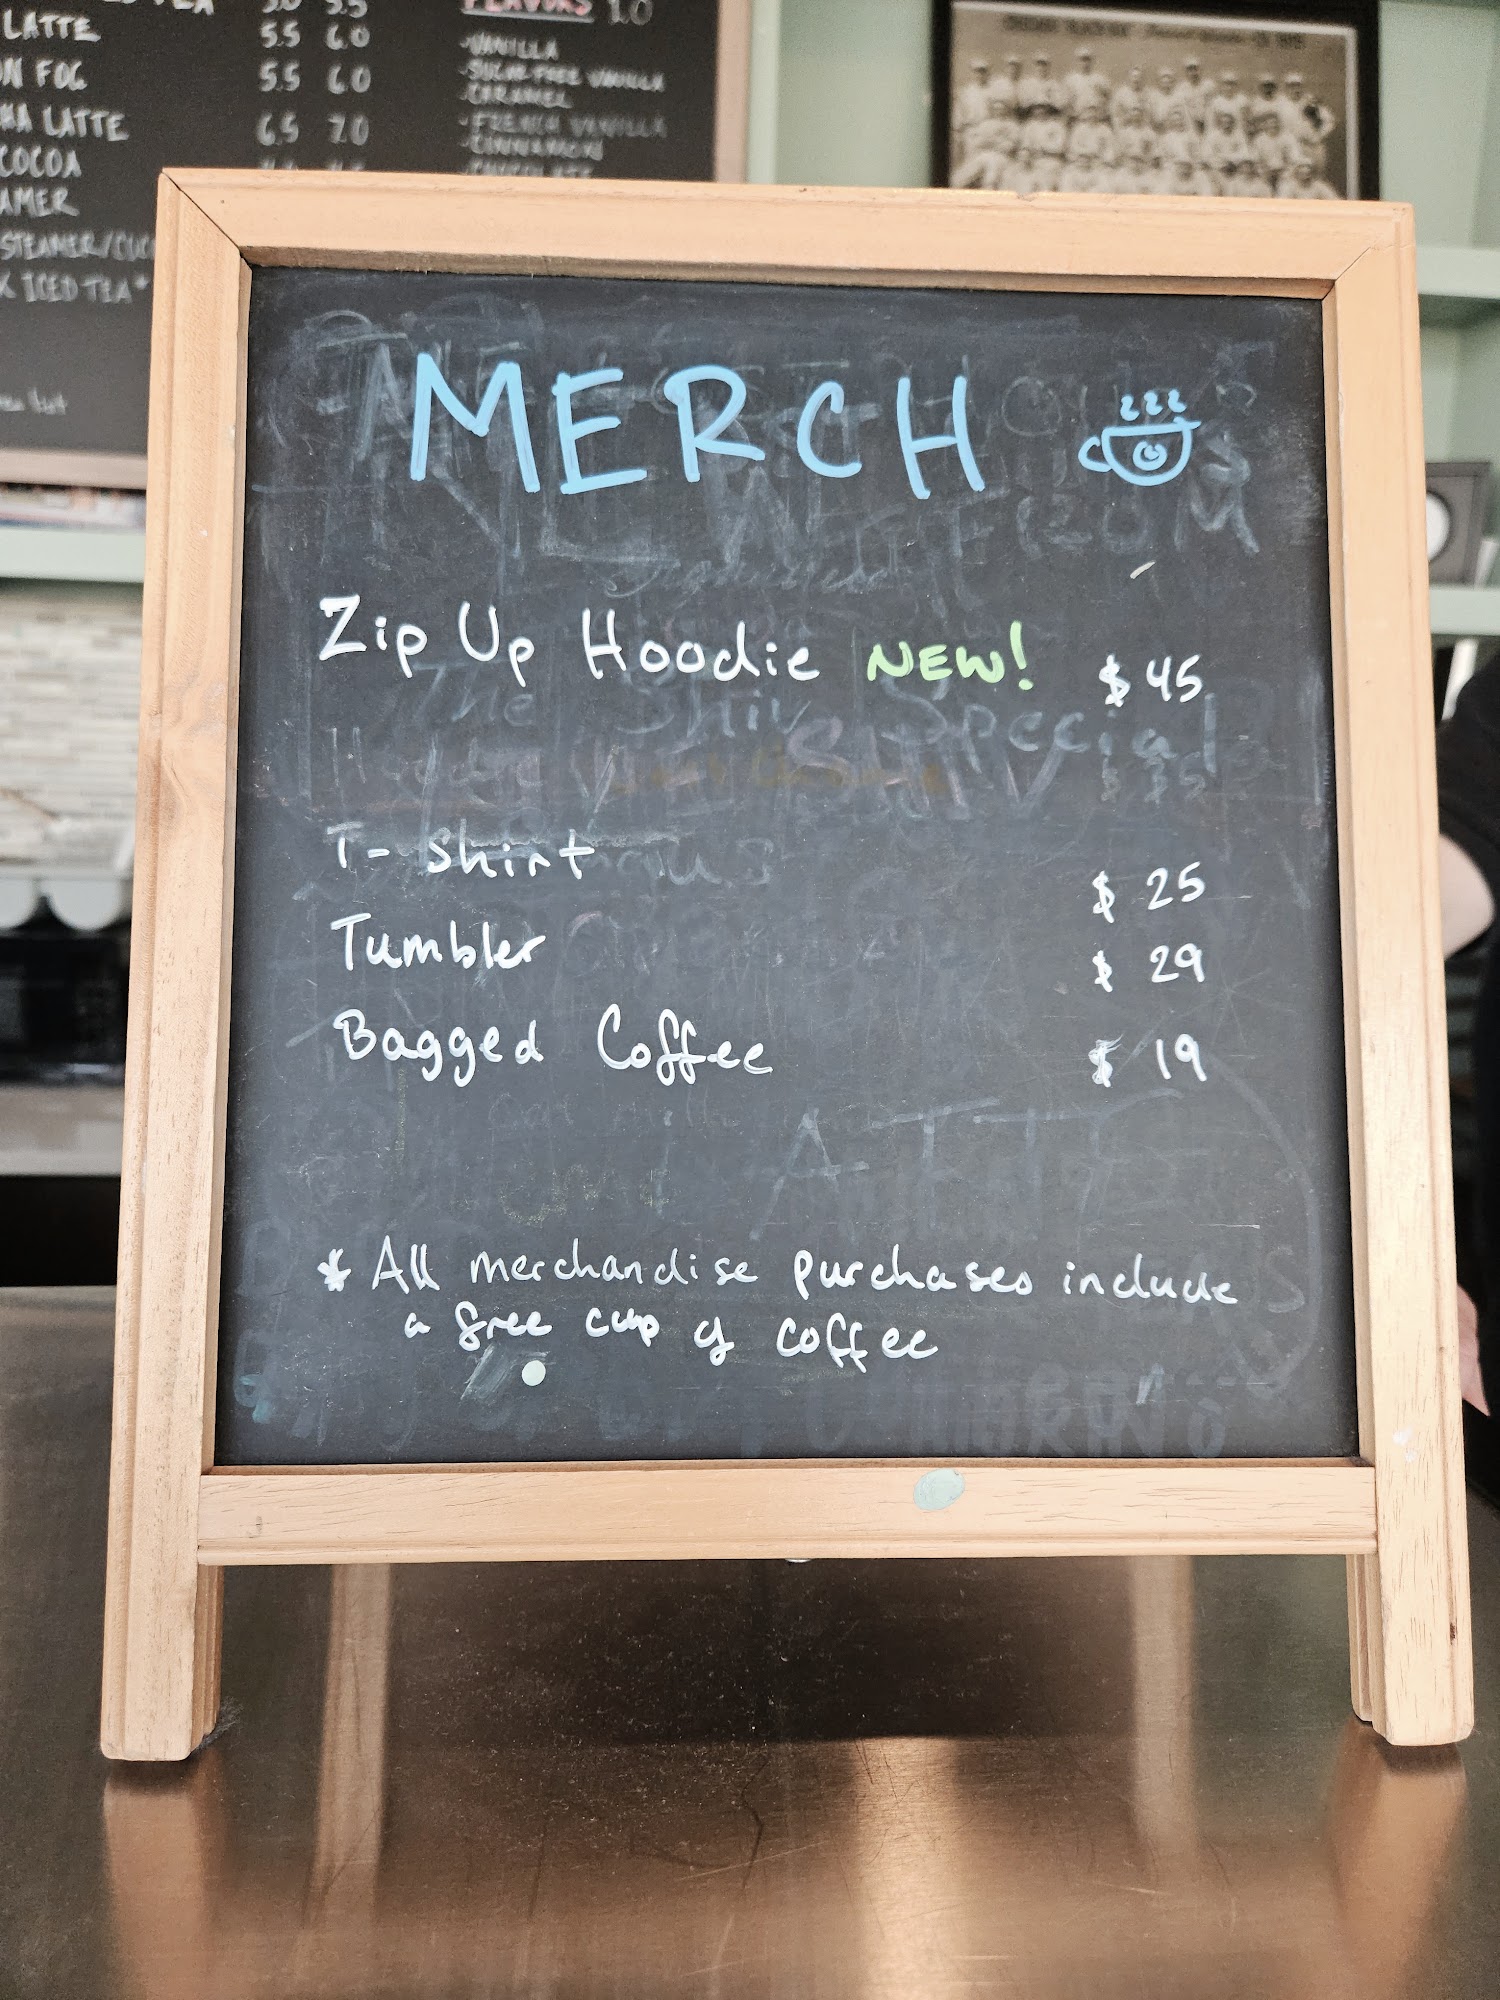 LATTE 5.5 6.0
FOG 5.5 6.0
LATTE 6.5 7.0
COCOA
STEAMER/
ICED TEA*
FLAVORS 1.0
-VANILLA
-SUGAR-FREE VANILLA
-CARAMEL
-FRENCH VANILLA
-CINNAMON
-CHOCOLATE
MERCH
Zip Up Hoodie NEW! $45
T-Shirt $25
Tumbler $29
Bagged Coffee $19
* All merchandise purchases include
a free cup of coffee